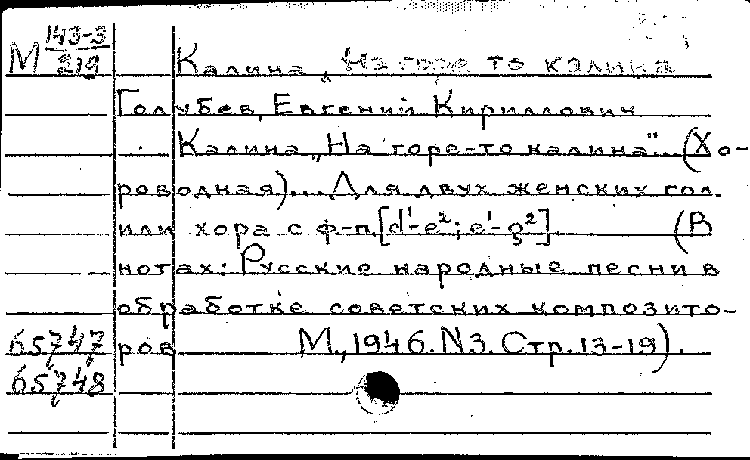 М 143-3/219 Калина „На горе то калина
Голубев, Евгений Кириллович
Калина „На горе-то калина". (Хо-
роводная)... Для двух женских гол.
или хора с ф-п. [d¹-e²; e¹-g²]. (В
нотах: Русские народные песни в
обработке советских композито-
65747 ров М., 1946. N3. Стр. 13-19).
65748